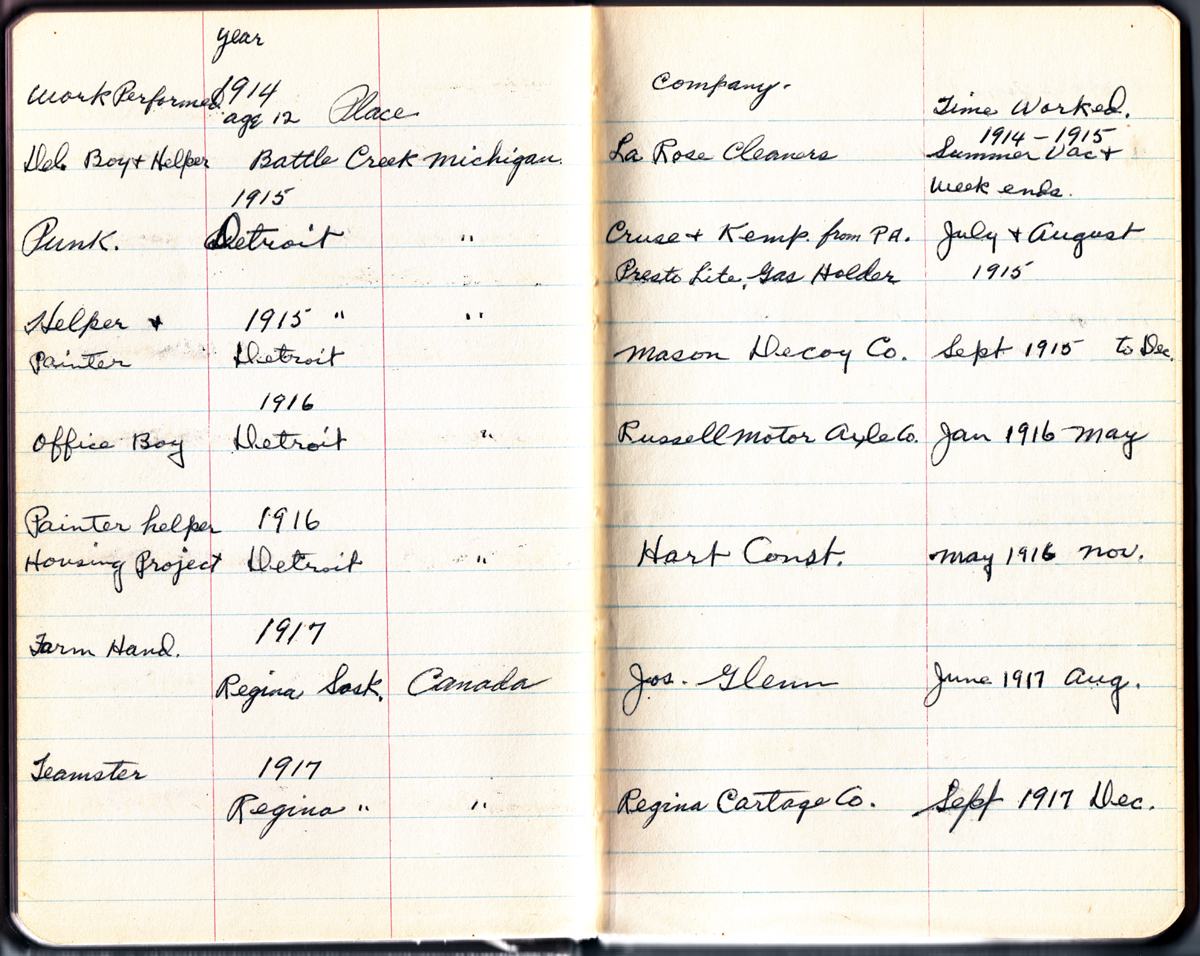 year
Work Performed 1914 Place Company.
age 12 Time Worked.
1914 - 1915
Del. Boy & Helper Battle Creek Michigan. La Rose Cleaners Summer Vac &
1915 Week ends.
Punk. Detroit " Cruse & Kemp. from PA. July & August
Presto Lite, Gas Holder 1915
Helper & 1915 " "
Painter Detroit Mason Decoy Co. Sept 1915 to Dec.
1916
Office Boy Detroit " Russell Motor Axle Co. Jan 1916 May
Painter helper 1916
Housing Project Detroit " Hart Const. May 1916 Nov.
Farm Hand. 1917
Regina Sask. Canada Jos. Glenn June 1917 Aug.
Teamster 1917
Regina " " Regina Cartage Co. Sept 1917 Dec.